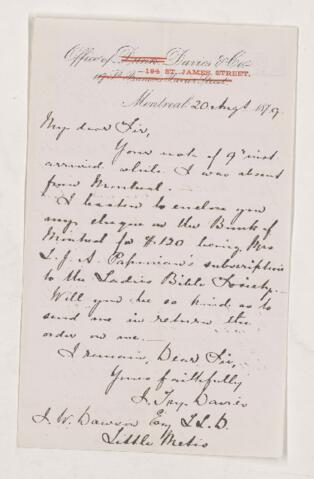 Office of Dunn Davies & Co.
194 ST. JAMES STREET.
Montreal 20 Augt 1879.
My dear Sir,
Your note of 9th inst
arrived while I was absent
from Montreal.
I hasten to enclose you
my cheque on the Bank of
Montreal for $130 being Mrs
L. J. A. Papineau's subscription
to the Ladies Bible Society.
Will you be so kind as to
send me in return the
order on me.—
I remain, Dear Sir,
Yours faithfully
Davies
J. W. Dawson Esq LL.D.
Little Metis